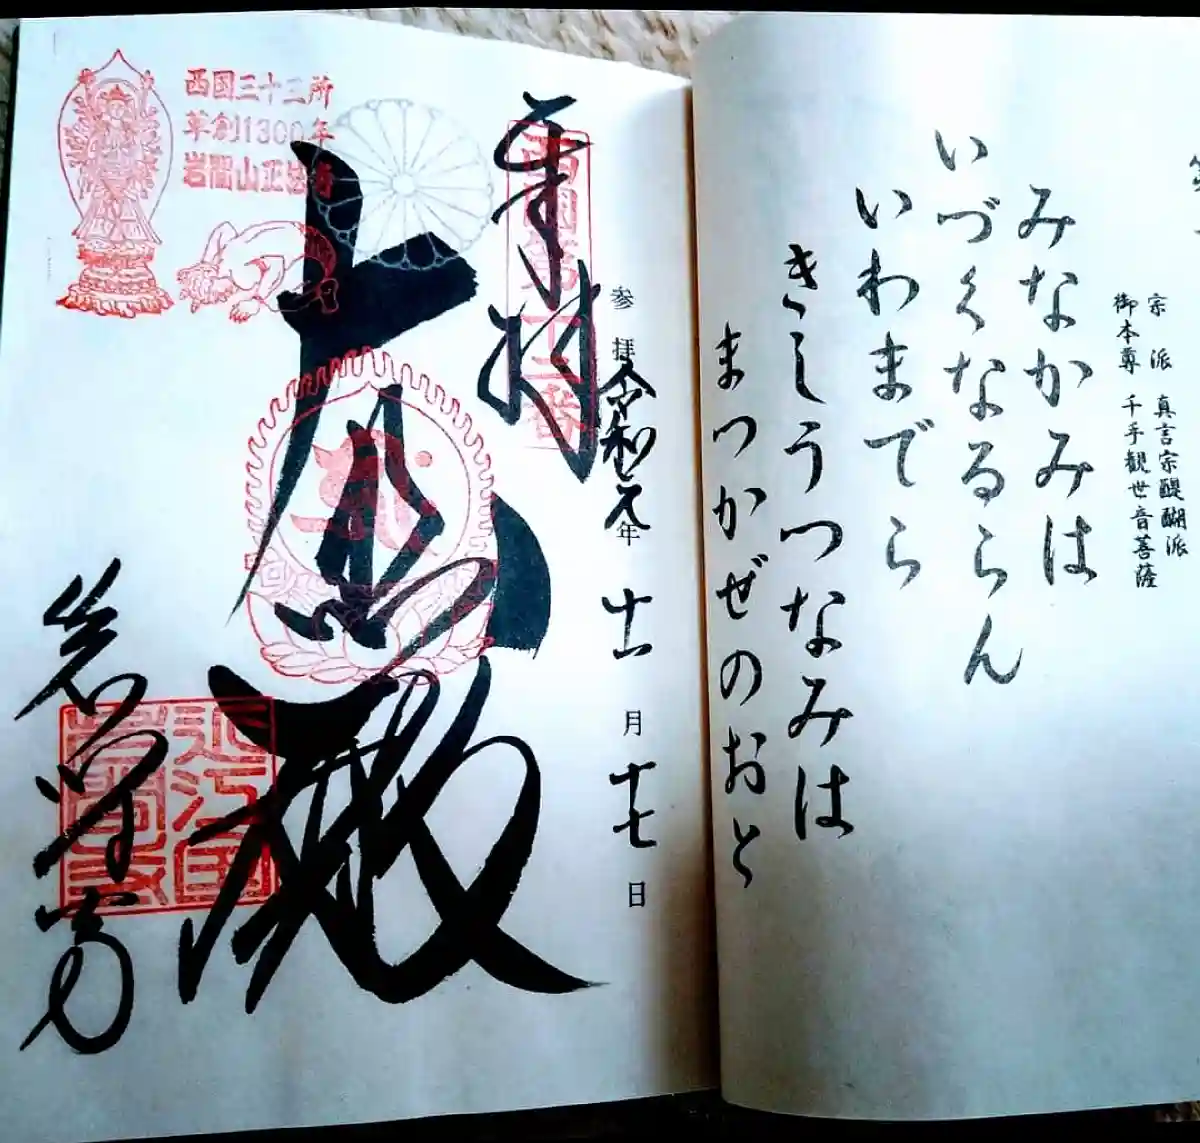 宗派 真言宗醍醐派
御本尊 千手観世音菩薩
みなかみは
いづくなるらん
いわまでら
きしうつなみは
まつかぜのおと
参拝 令和元年 十一月 十七日
奉拝
西国第十二番
大悲殿
西国三十三所
草創1300年
岩間山正法寺
岩間寺
近江国
岩間寺